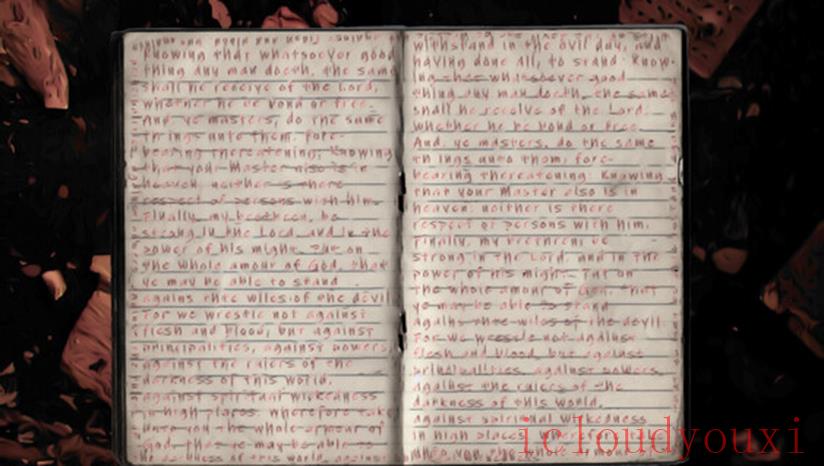 Knowing that whatsoever good
thing any man doeth, the same
shall he receive of the Lord,
whether he be bond or free.
And ye masters, do the same
things unto them, fore-
bearing threatening: knowing
that your Master also is in
heaven: neither is there
respect of persons with him.
Finally, my brethren, be
strong in the Lord, and in the
power of his might. Put on
the whole amour of God, that
ye may be able to stand
agains thte wiles of the devil
For we wrestle not against
flesh and blood, but against
principalities, against powers,
against the rulers of the
darkness of this world,
against spiritual wickedness
in high places. Wherefore take
unto you the whole armour of
God, that ye may be able to
withstand in the evil day, and
having done all, to stand. Know-
ing that whatsoever good
thing any man doeth, the same
shall he receive of the Lord.
Whether he be bond or free.
And, ye masters, do the same
things unto them, fore-
bearing thereatening: Knowing
that your Master also is in
heaven: neither is there
respect of persons with him.
Finally, my brethren, be
strong in the Lord, and in the
power of his might. Put on
the whole amour of God, that
ye may be able to stand
agains thte wiles of the devil.
For we wrestle not against
flesh and blood, but against
principalities, against powers,
against the rulers of the
darkness of this world,
against spiritual wickedness
in high places. Wherefore
icloudyouxi